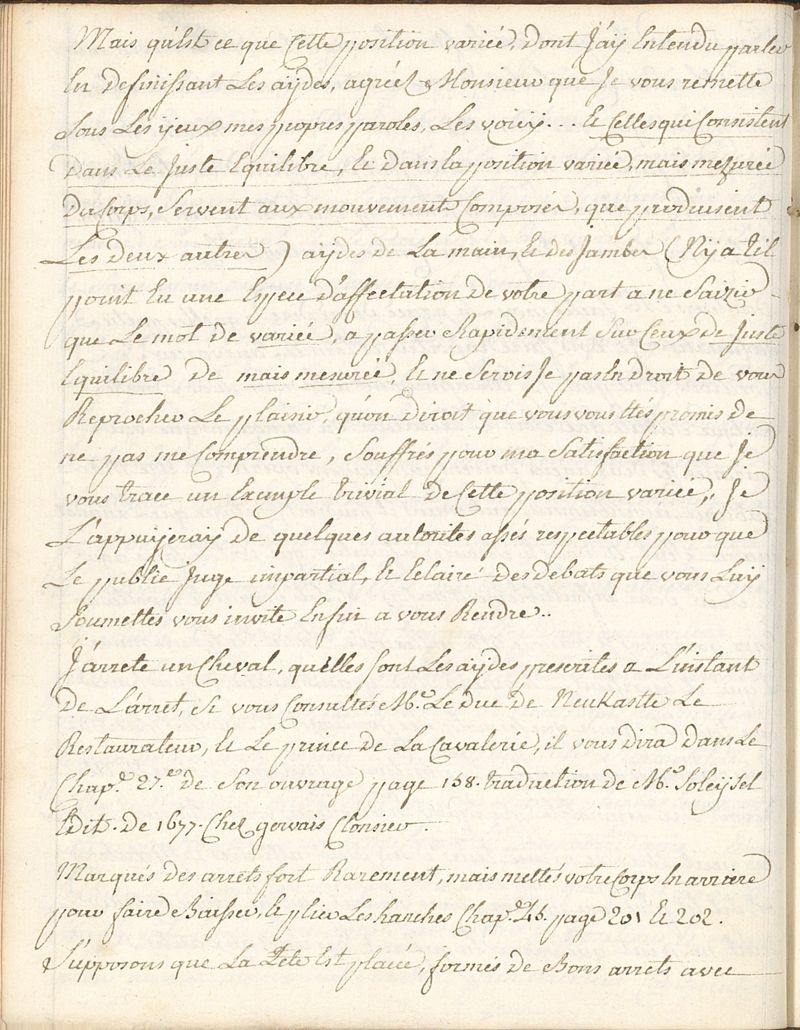 Mais qu'Est ce que Cette position variéé, dont J'ay Entendu parler
En definissant Les aydes, agréés Monsieur que Je vous remette
Sous Les yeux mes propres paroles, Les voicy... Et Celles qui Consistent
Dans Le Juste Equilibre, Et Dans la position variéé, mais mesuréé
Du Corps, Servent aux mouvements Composés, que produisent
Les deux autres) aydes de La main, Et des Jambes (N'y a til
point Eu une Espece d'affectation de votre part a ne Saizir
que Le mot de variéé, a passer Rapidement Sur Ceux de Juste
Equilibre de mais mesuréé, Et ne Serois Je pas En Droit de vous
Reprocher Le plaisir, qu'on diroit que vous vous Etés promis de
ne pas me Comprendre, Souffrés pour ma Satisfaction que Je
vous trace un Exemple trivial de Cette position variéé, Je
L'appuyeray de quelques autorités assés respectables pour que
Le public Juge impartial, Et Eclairé Des debats que vous Luy
Soumettes vous invite Enfin a vous Rendre..
J'arrete un Cheval, quelles sont Les aydes prescrites a L'instant
de L'arret, Si vous Consultés Mr. Le duc de Neukastle Le
Restaurateur, Et Le prince de La Cavalerie, il vous dira Dans Le
Chape. 27.e de Son ouvrage page 158. traduction de Mr. Soleysel
Edit. de 1677. Chez gervais Clousier.
Marqués des arrets fort Rarement, mais mettés votre Corps En arriere
pour faire Baisser, Et plier Les hanches Chape. 46. page 201 Et 202.
Supposons que La Tete Est placéé, formés de Bons arrets avec